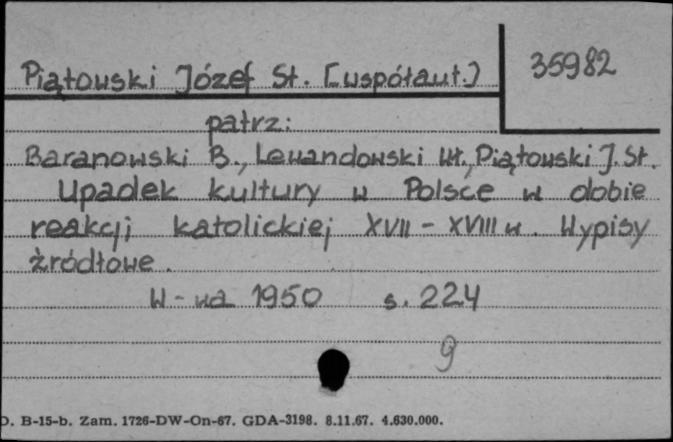 Piątowski Józef St. [współaut.]
35982
patrz:
Baranowski B., Lewandowski Wł., Piątowski J. St.
Upadek kultury w Polsce w dobie
reakcji katolickiej XVII - XVIII w. Wypisy
źródłowe.
W-wa 1950 s. 224
9
D. B-15-b. Zam. 1726-DW-On-67. GDA-3198. 8.11.67. 4.630.000.